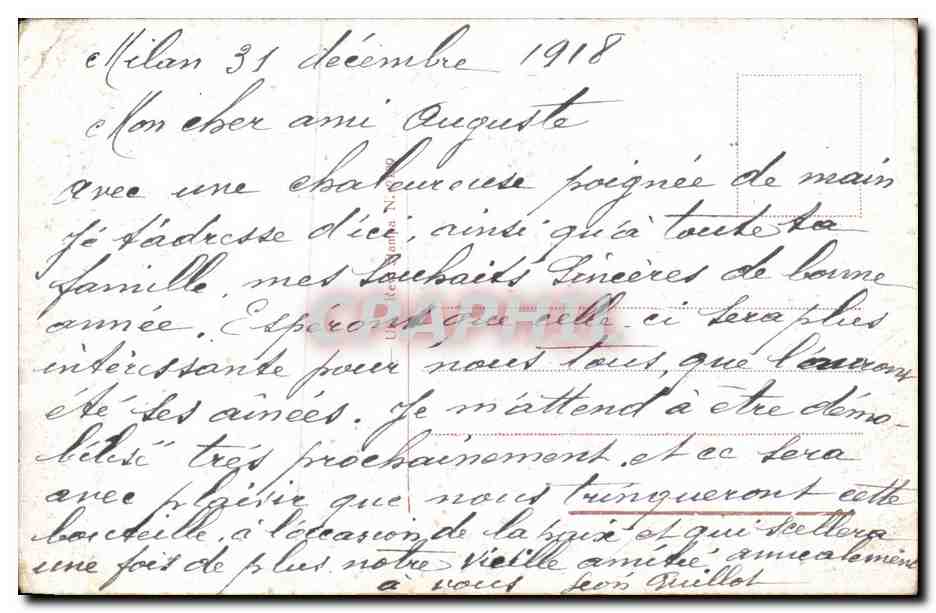 Milan 31 décembre 1918
Mon cher ami Auguste
avec une chaleureuse poignée de main
Je t'adresse d'ici, ainsi qu'à toute ta
famille, mes souhaits sincères de bonne
année. Espérons que celle-ci sera plus
intéressante pour nous tous, que l'auront
été ses aînées. Je m'attend à être démo-
bilisé très prochainement, et ce sera
avec plaisir que nous trinqueront cette
bouteille, à l'occasion de la paix et qui scellera
une fois de plus notre vieille amitié amicalement
à vous Léon Quillot
CPAPHIL